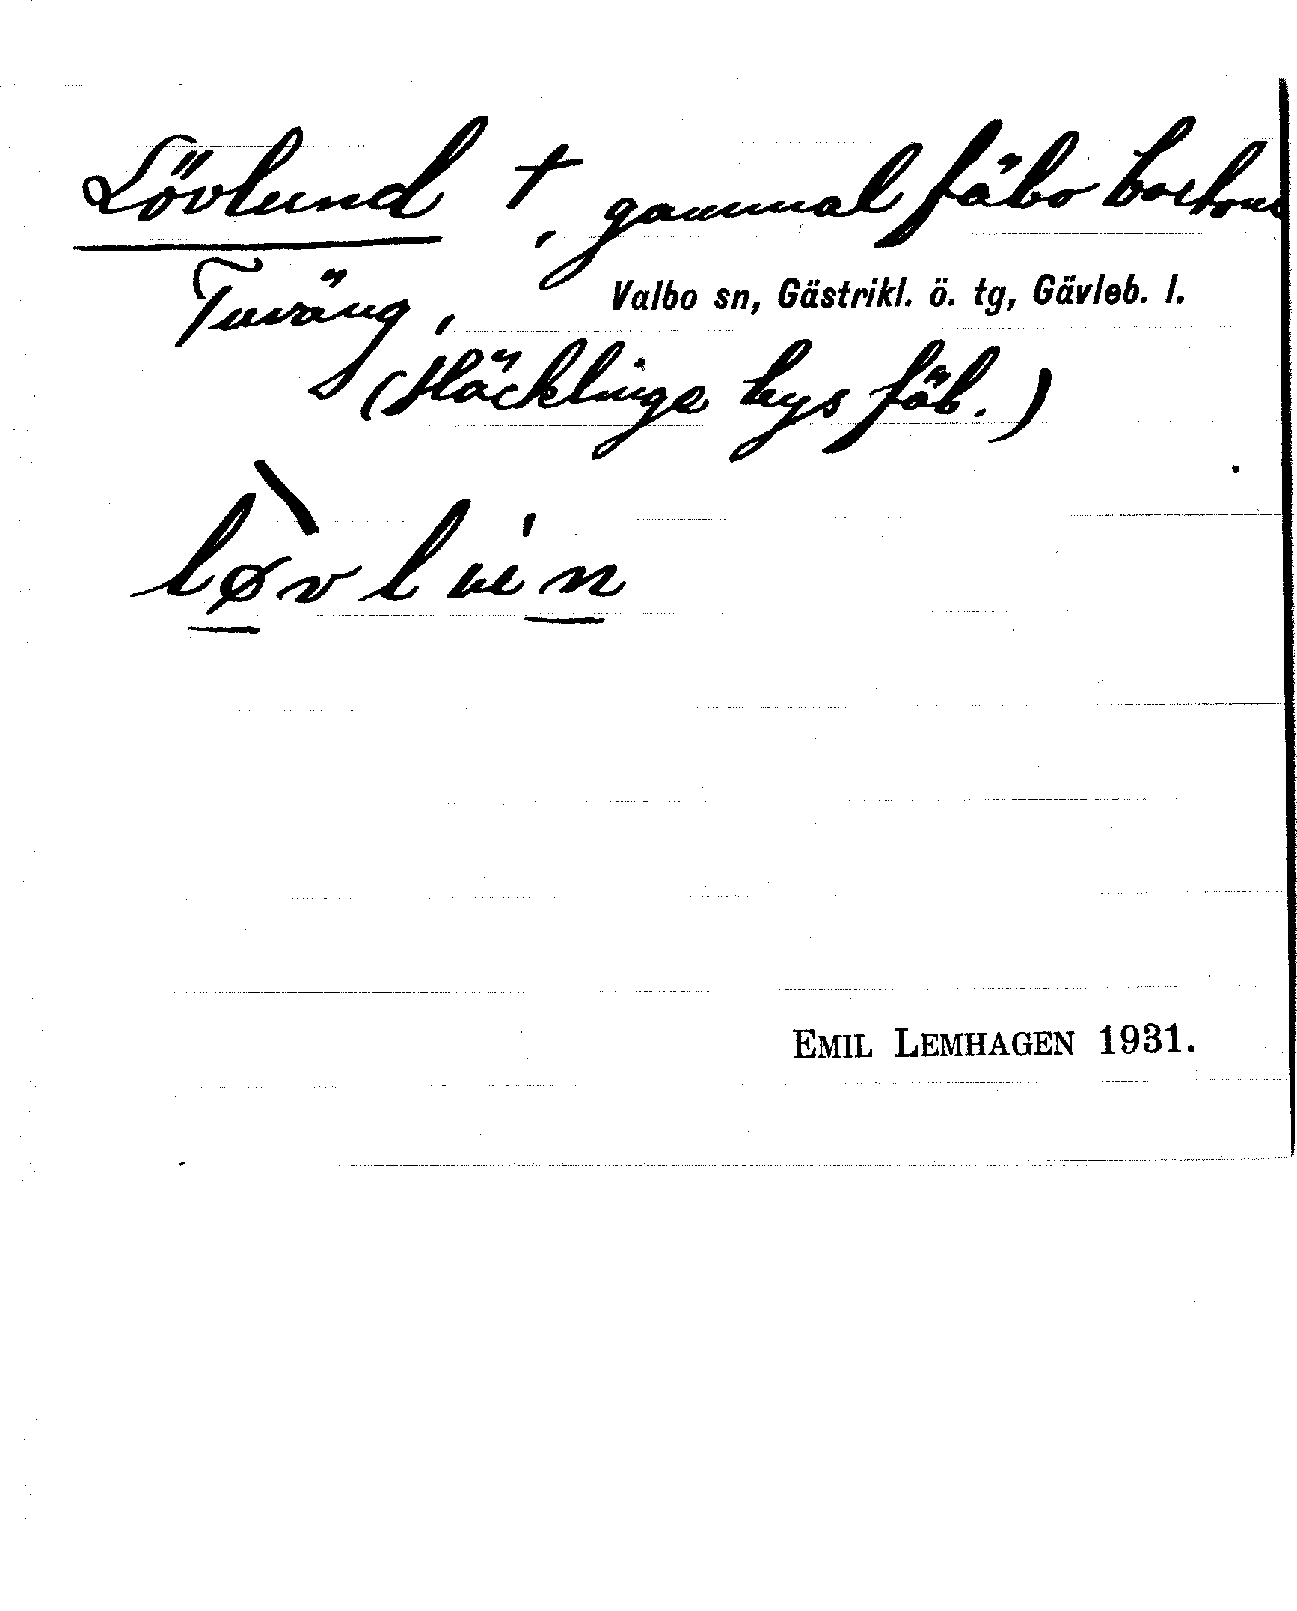 Lövlund †, gammal fäbo bortom
Tuväng,
Valbo sn, Gästrikl. ö. tg, Gävleb. l.
(Häcklinge bys fäb.)
løvlun
EMIL LEMHAGEN 1931.